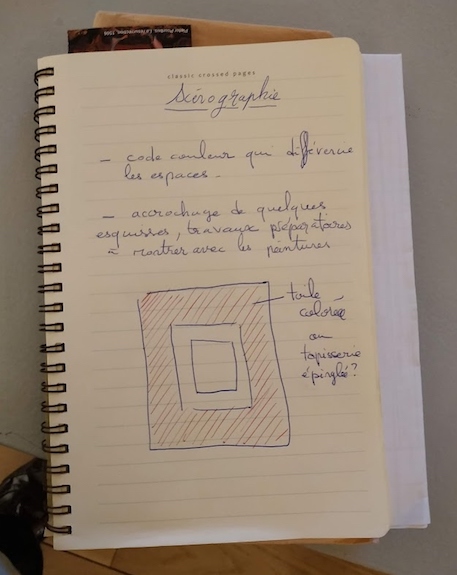 classic crossed pages
Scénographie
- code couleur qui différencie
les espaces.
- accrochage de quelques
esquisses, travaux préparatoires
à montrer avec les peintures
toile
colorée
ou
tapisserie
épinglé?